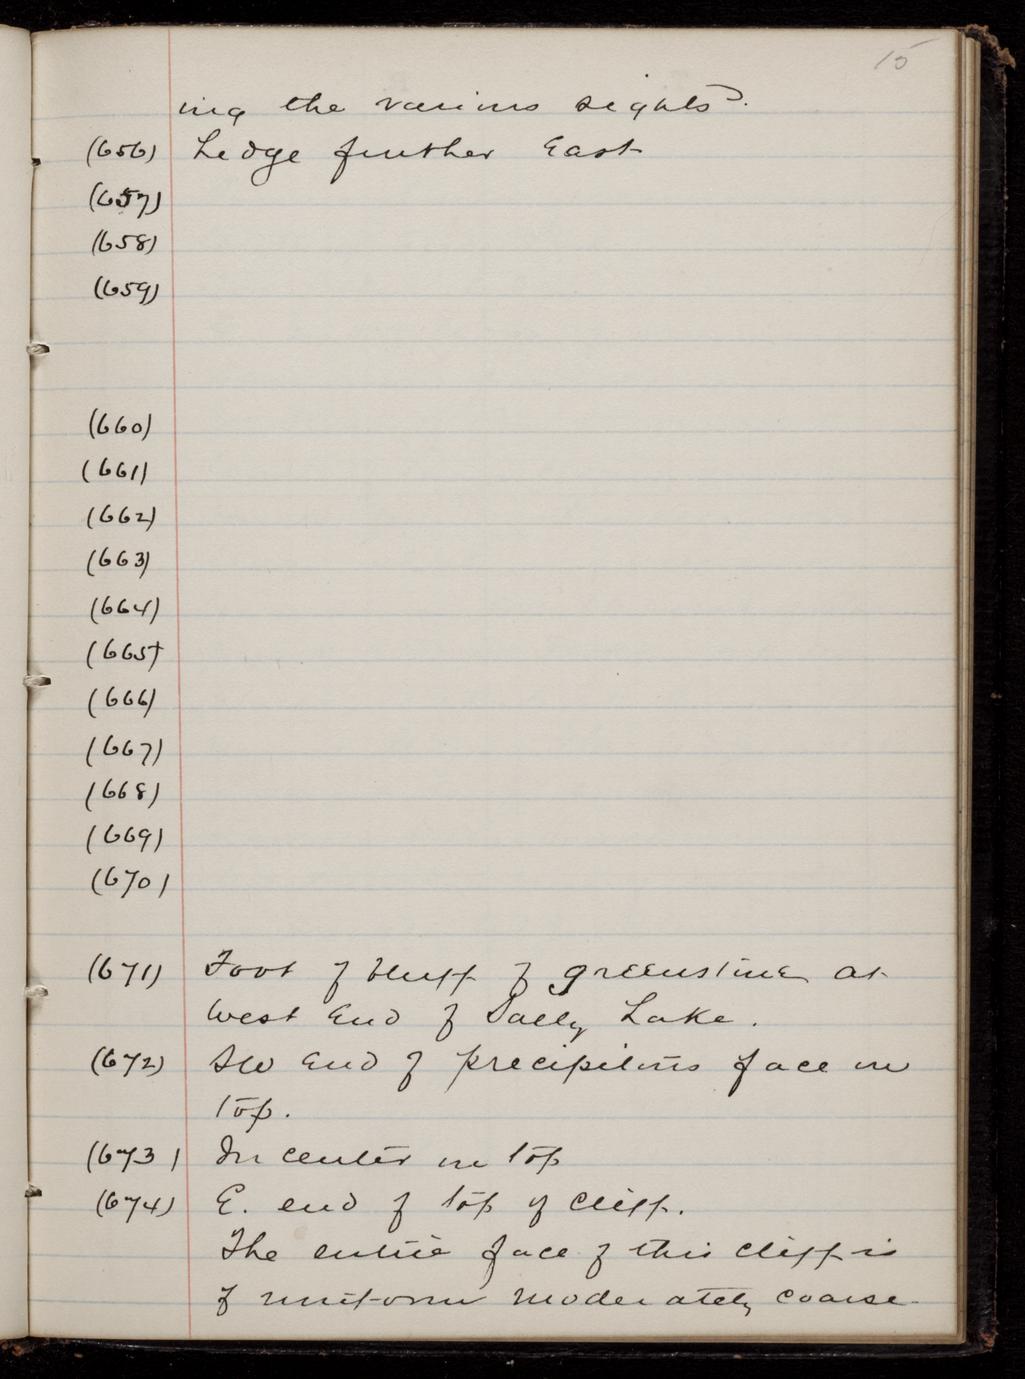 15
ing the various sights).
(656) Ledge further East
(657)
(658)
(659)
(660)
(661)
(662)
(663)
(664)
(665)
(666)
(667)
(668)
(669)
(670)
(671) Foot of bluff of greenstone at
West End of Sally Lake.
(672) SW End of precipitous face on
top.
(673) In center on top
(674) E. end of top of cliff.
The entire face of this cliff is
of uniform moderately coarse